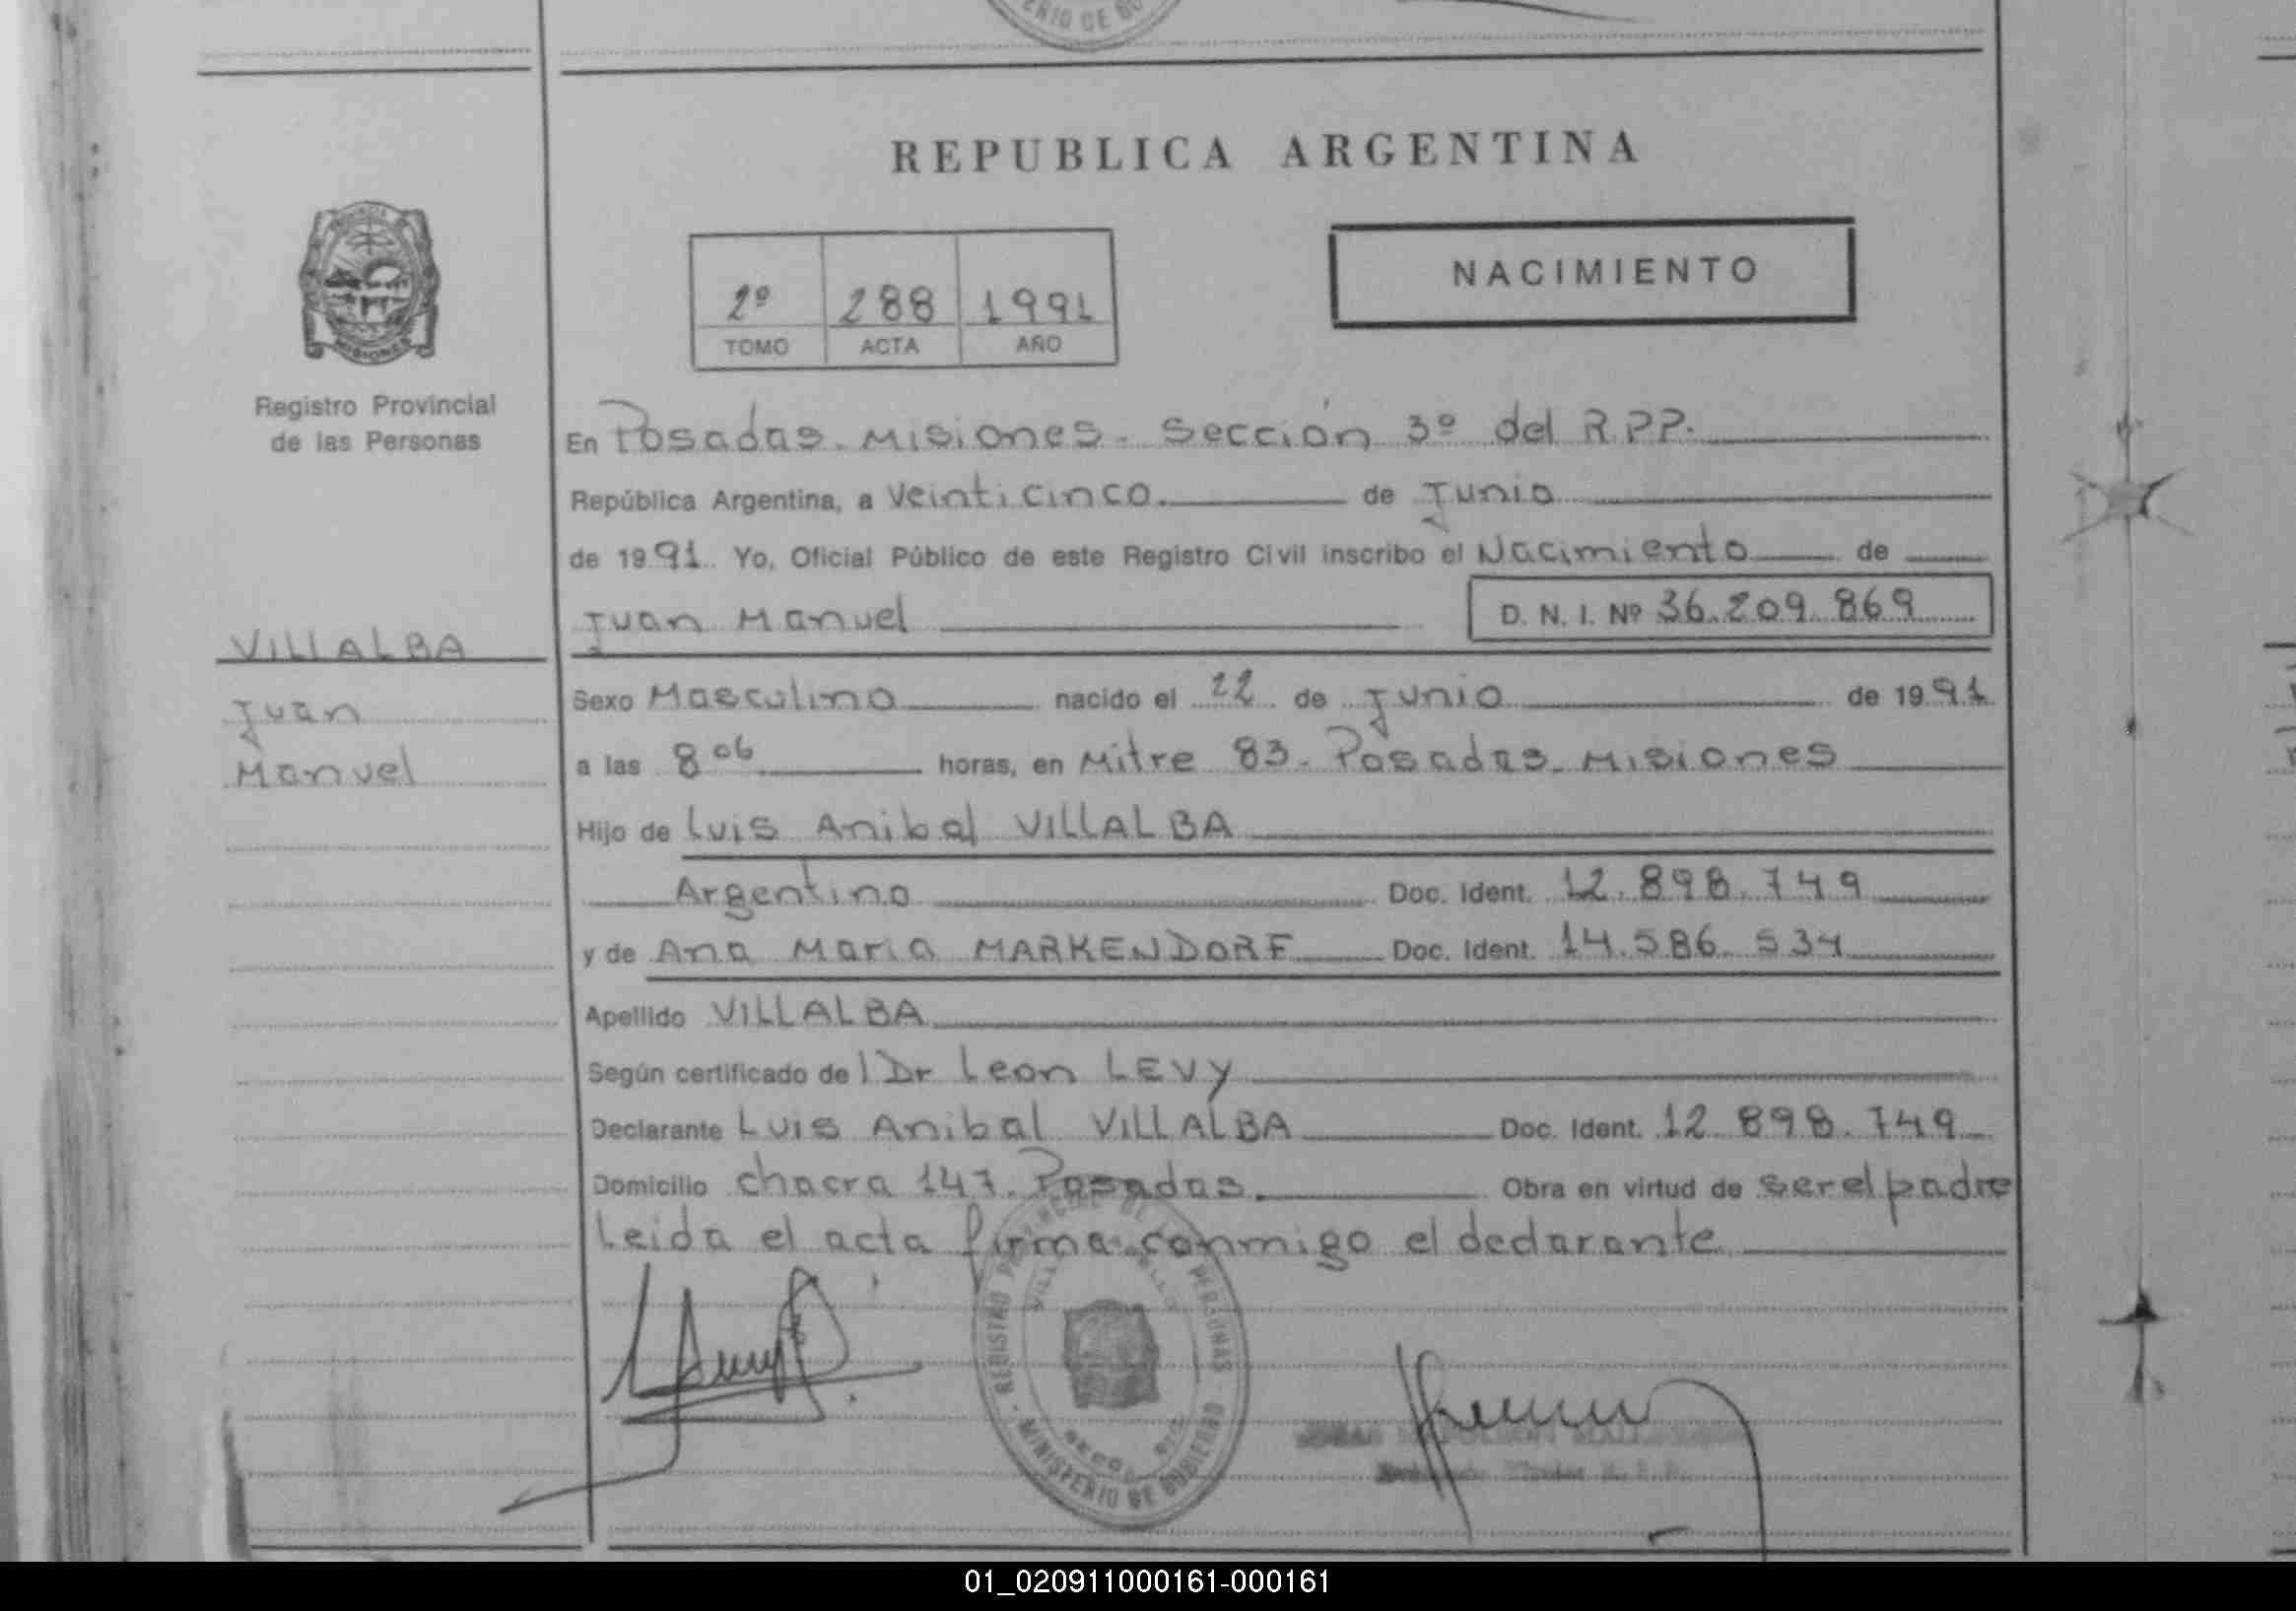 ERIO DE GO
REPUBLICA ARGENTINA
2º 288 1991
TOMO ACTA AÑO
NACIMIENTO
MISIONES
Registro Provincial
de las Personas
En Posadas. Misiones. Sección 3º del R.P.P.
República Argentina, a Veinticinco. de Junio
de 1991. Yo, Oficial Público de este Registro Civil inscribo el Nacimiento de
Juan Manuel D. N. I. Nº 36.209.869
VILLALBA
Juan
Manuel
Sexo Masculino nacido el 22 de Junio de 1991
a las 8 06 horas, en Mitre 83. Posadas. Misiones
Hijo de Luis Anibal VILLALBA
Argentino Doc. Ident. 12.898.749
y de Ana Maria MARKENDORF Doc. Ident. 14.586.534
Apellido VILLALBA
Según certificado del Dr Leon LEVY
Declarante Luis Anibal VILLALBA Doc. Ident. 12.898.749
Domicilio chacra 147. Posadas. Obra en virtud de ser el padre
Leida el acta firma conmigo el declarante
REGISTRO PROVINCIAL DE LAS PERSONAS
MINISTERIO DE GOBIERNO
01_020911000161-000161